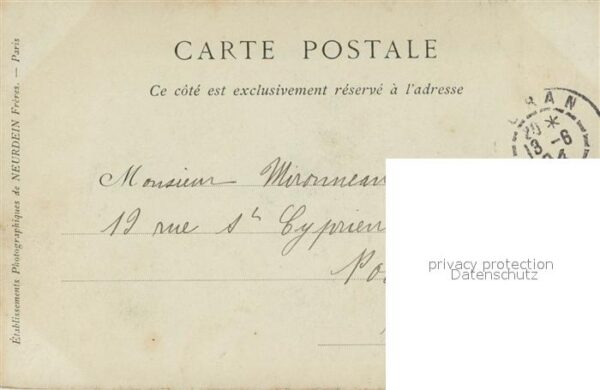 CARTE POSTALE
Ce côté est exclusivement réservé à l'adresse
Établissements Photographiques de NEURDEIN Frères. — Paris
ORAN
20 *
13 -6
Monsieur Mironneau
19 rue St Cyprien
privacy protection
Datenschutz